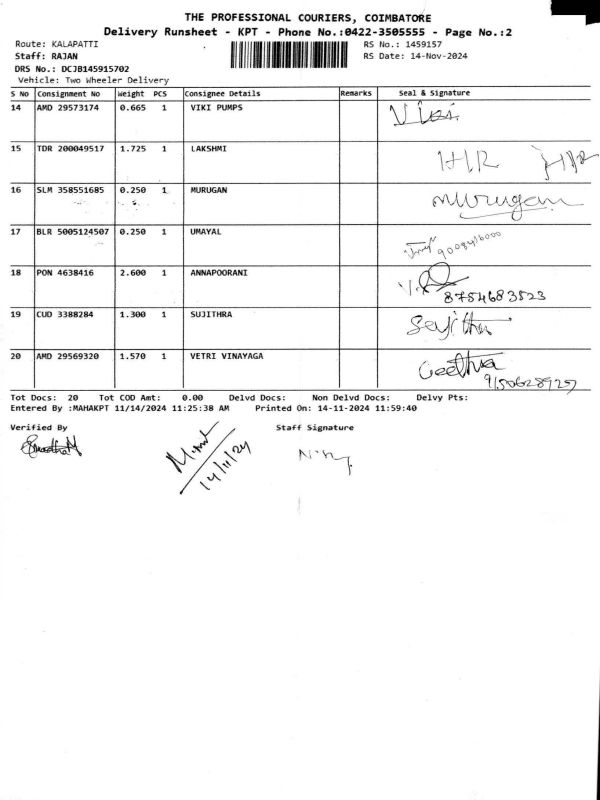 THE PROFESSIONAL COURIERS, COIMBATORE
Delivery Runsheet - KPT - Phone No.:0422-3505555 - Page No.:2
Route: KALAPATTI RS No.: 1459157
Staff: RAJAN RS Date: 14-Nov-2024
DRS No.: DCJB145915702
Vehicle: Two Wheeler Delivery
S No Consignment No Weight PCS Consignee Details Remarks Seal & Signature
14 AMD 29573174 0.665 1 VIKI PUMPS
15 TDR 200049517 1.725 1 LAKSHMI HR HR
16 SLM 358551685 0.250 1 MURUGAN Murugan
17 BLR 5005124507 0.250 1 UMAYAL
18 PON 4638416 2.600 1 ANNAPOORANI
8754683523
19 CUD 3388284 1.300 1 SUJITHRA
20 AMD 29569320 1.570 1 VETRI VINAYAGA Geetha
9150628927
Tot Docs: 20 Tot COD Amt: 0.00 Delvd Docs: Non Delvd Docs: Delvy Pts:
Entered By :MAHAKPT 11/14/2024 11:25:38 AM Printed On: 14-11-2024 11:59:40
Verified By Staff Signature
14/11/24